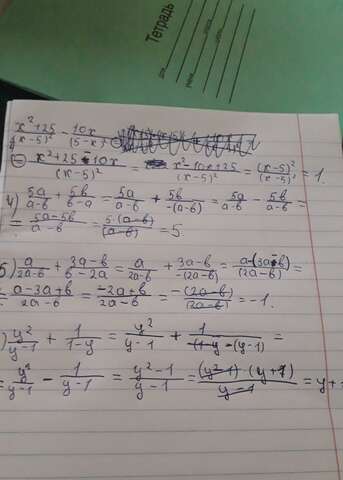 Тетрадь
для
(x²+25)/(x-5)² - 10x/(5-x)
= (x²+25-10x)/(x-5)² = (x²-10x+25)/(x-5)² = (x-5)²/(x-5)² = 1.
4) 5a/(a-b) + 5b/(b-a) = 5a/(a-b) + 5b/(-(a-b)) = 5a/(a-b) - 5b/(a-b) =
= (5a-5b)/(a-b) = 5(a-b)/(a-b) = 5.
5) a/(2a-b) + (3a-b)/(b-2a) = a/(2a-b) + (3a-b)/(-(2a-b)) = (a-(3a-b))/(2a-b) =
= (a-3a+b)/(2a-b) = (-2a+b)/(2a-b) = -(2a-b)/(2a-b) = -1.
) y²/(y-1) + 1/(1-y) = y²/(y-1) + 1/(-(y-1)) =
= y²/(y-1) - 1/(y-1) = (y²-1)/(y-1) = (y-1)·(y+1)/(y-1) = y+